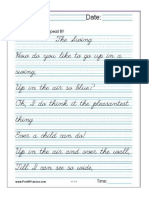 Date:
The Swing
How do you like to go up in a
swing,
Up in the air so blue?
Oh, I do think it the pleasantest
thing
Ever a child can do!
Up in the air and over the wall,
Till I can see so wide,
Time: